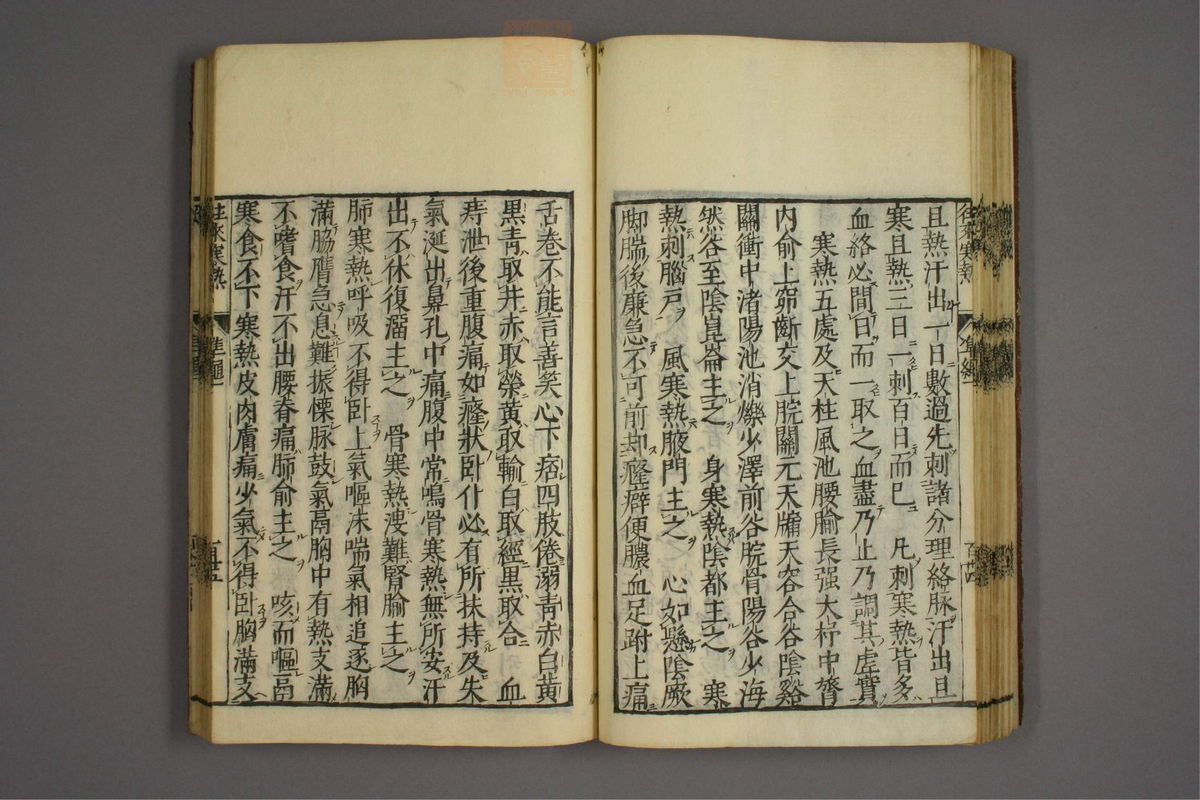 且熱汗出一日數過先刺諸分理絡脉汗出且
寒且熱三日一刺百日而巳 凡刺寒熱皆多
血絡必間日而一取之血盡乃止乃調其虛實
寒熱五處及天柱風池腰腧長强大杼中膂
内俞上窌齗交上脘關元天牖天容合谷陰谿
關衝中渚陽池消爍少澤前谷腕骨陽谷少海
然谷至陰崑崙主之 身寒熱陰都主之 寒
熱刺腦戸 風寒熱腋門主之 心如懸陰厥
脚腨後廉急不可前却癃癖便膿血足跗上痛
舌卷不能言善笑心下痞四肢倦溺青赤白黄
黒青取井赤取榮黄取輸白取經黒取合 血
痔泄後重腹痛如癃狀卧仆必有所扶持及朱
氣涎出鼻孔中痛腹中常鳴骨寒熱無所安汗
出不休復溜主之 骨寒熱溲難腎腧主之
肺寒熱呼吸不得卧上氣嘔沫喘氣相追逐胸
滿脇膺急息難振慄脉鼓氣鬲胸中有熱支滿
不嗜食汗不出腰脊痛肺俞主之 咳而嘔鬲
寒食不下寒熱皮肉膚痛少氣不得卧胸滿支
往來寒熱